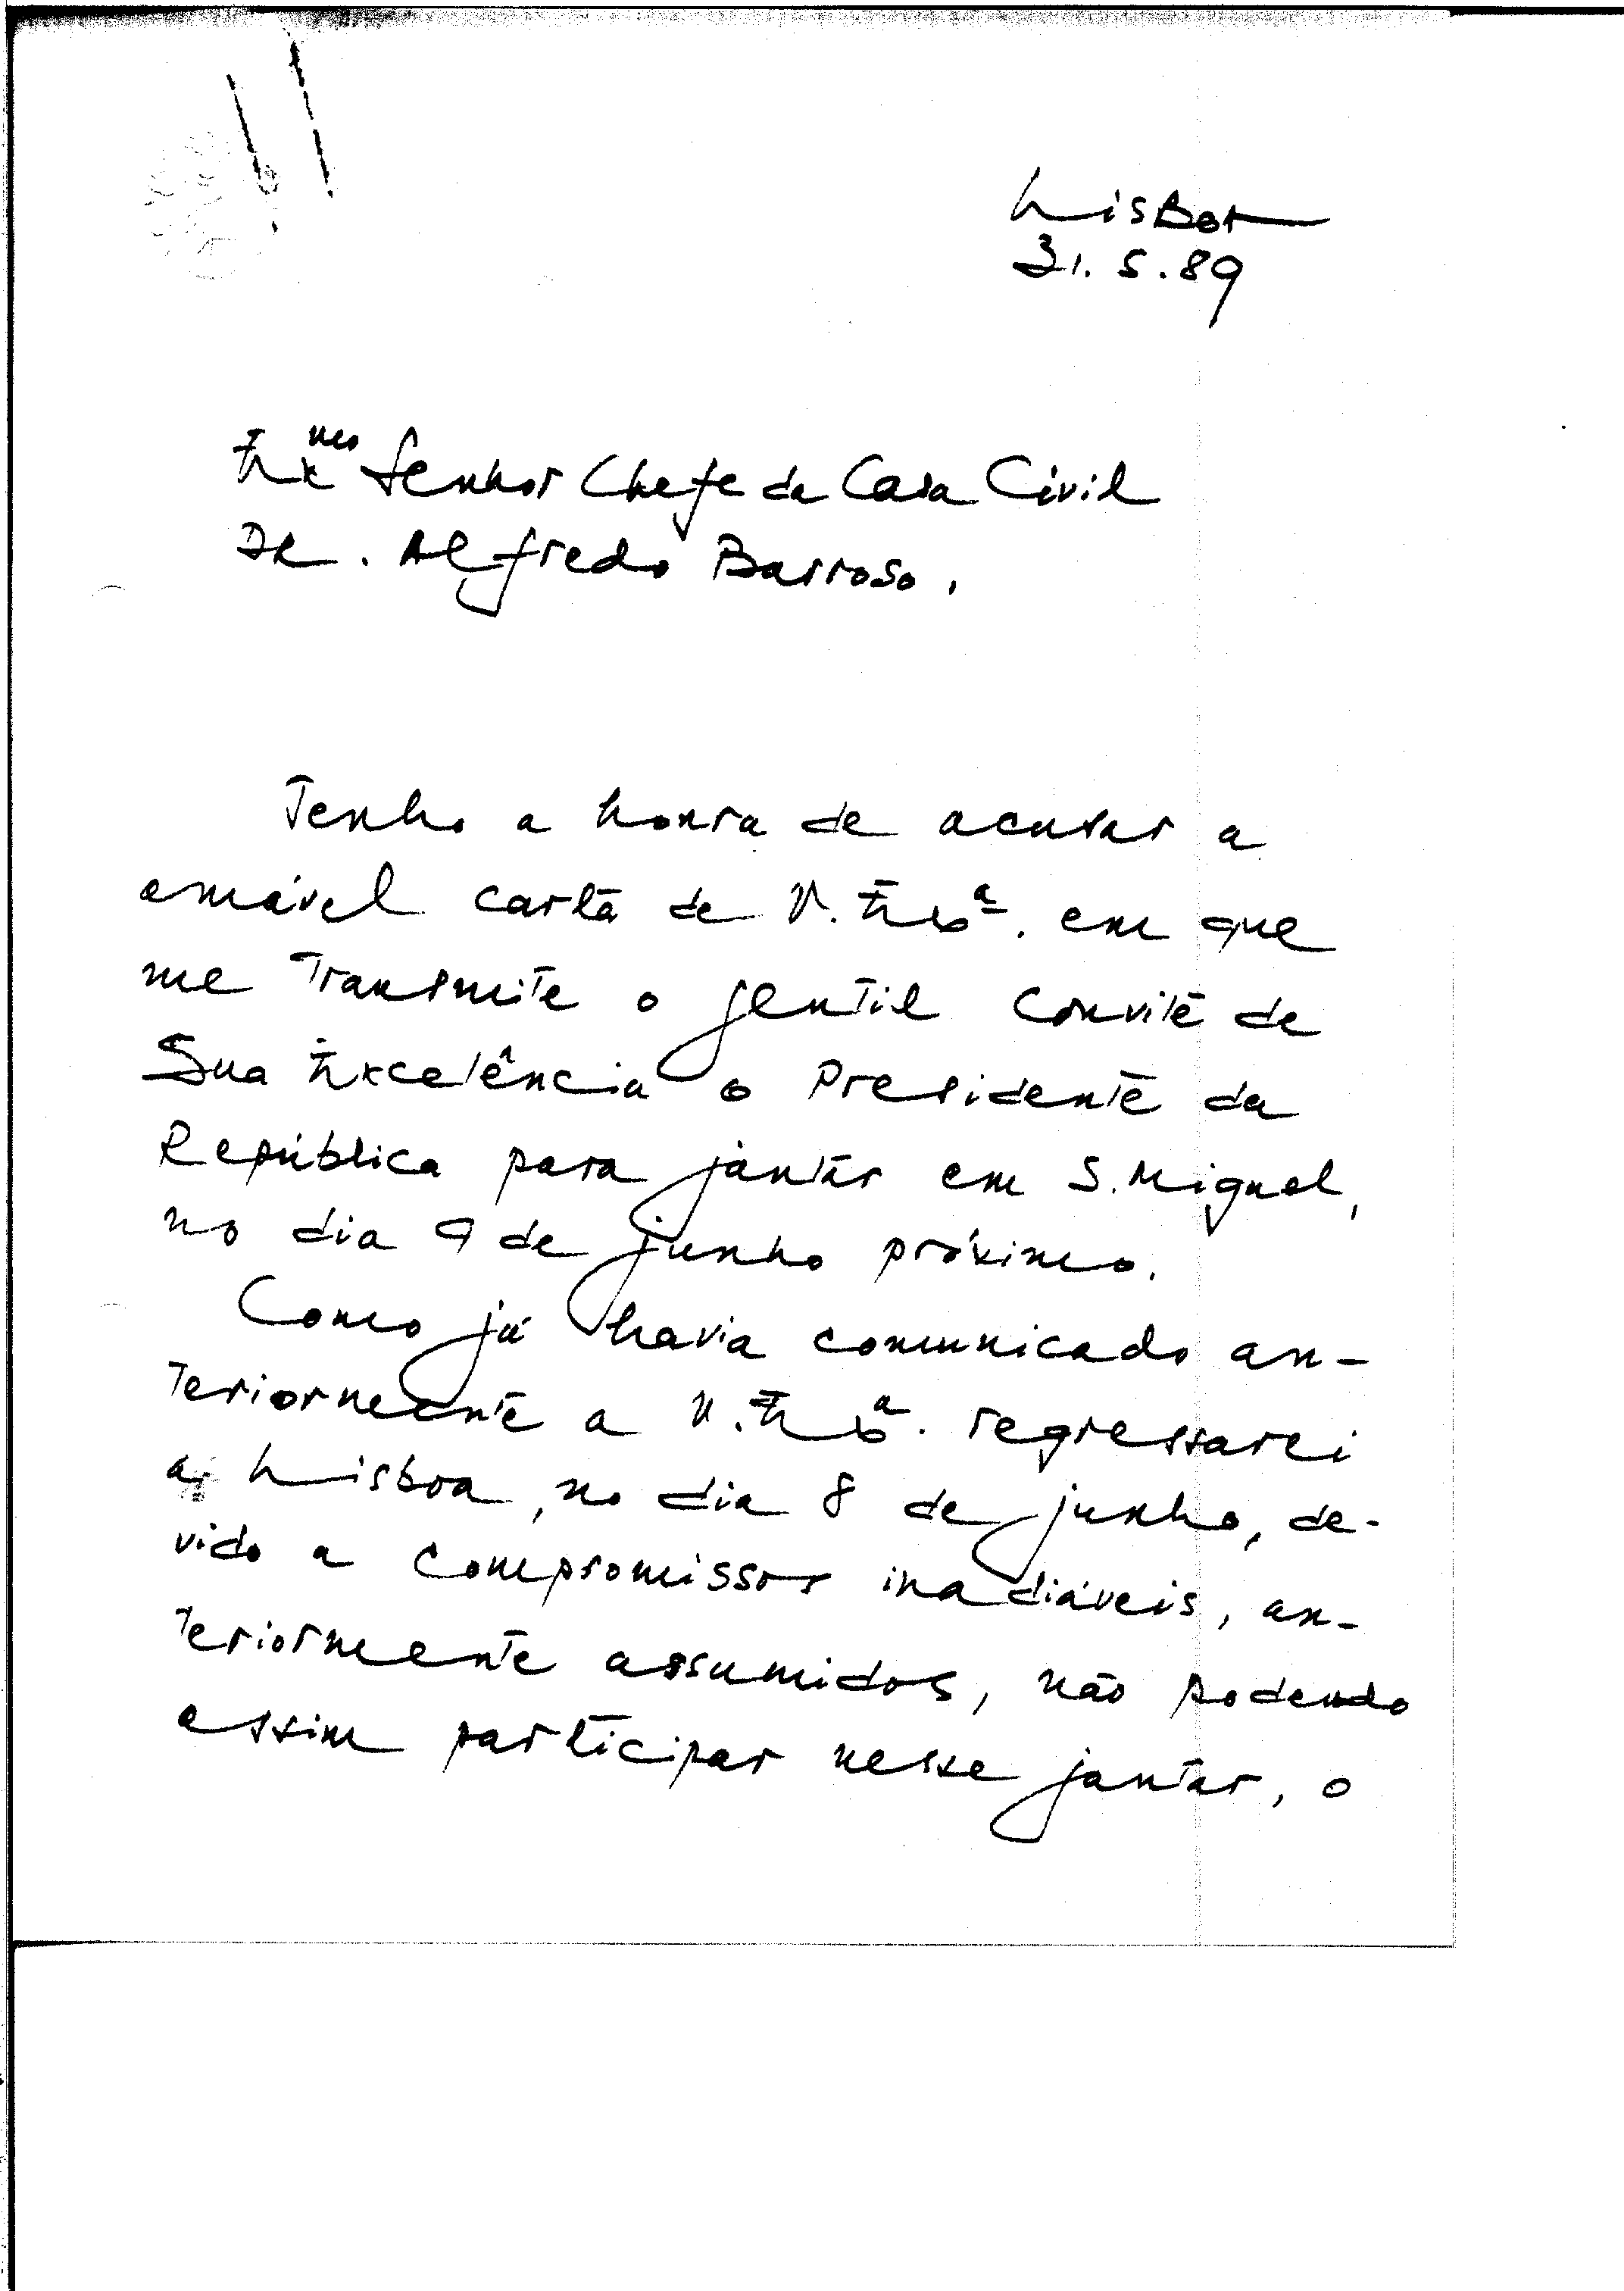 Lisboa
31.5.89
Exmo Senhor Chefe da Casa Civil
Dr. Alfredo Barroso,
Tenho a honra de acusar a
amável carta de V. Exª. em que
me transmite o gentil convite de
Sua Excelência o Presidente da
República para jantar em S. Miguel,
no dia 9 de junho próximo.
Como já havia comunicado an-
teriormente a V. Exª. regressarei
a Lisboa, no dia 8 de junho, de-
vido a compromissos inadiáveis, an-
teriormente assumidos, não podendo
assim participar nesse jantar, o